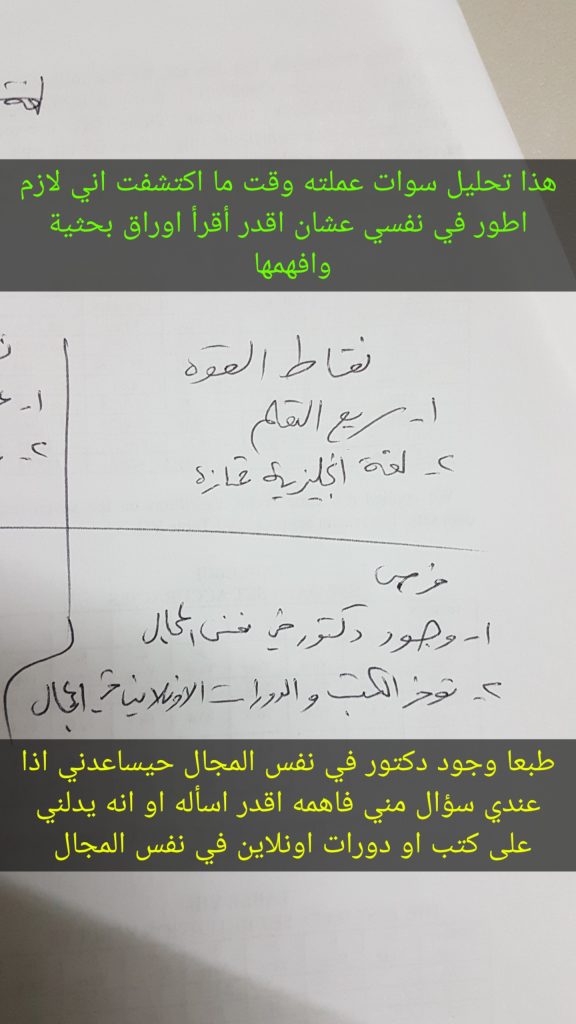 لغة
هذا تحليل سوات عملته وقت ما اكتشفت اني لازم
اطور في نفسي عشان اقدر أقرأ اوراق بحثية
وافهمها
نقاط القوه
١- سريع التعلم
٢- لغة انجليزية ممتازه
فرص
١- وجود دكتور في نفس المجال
٢- توفر الكتب و الدورات الاونلاين في المجال
طبعا وجود دكتور في نفس المجال حيساعدني اذا
عندي سؤال مني فاهمه اقدر اسأله او انه يدلني
على كتب او دورات اونلاين في نفس المجال